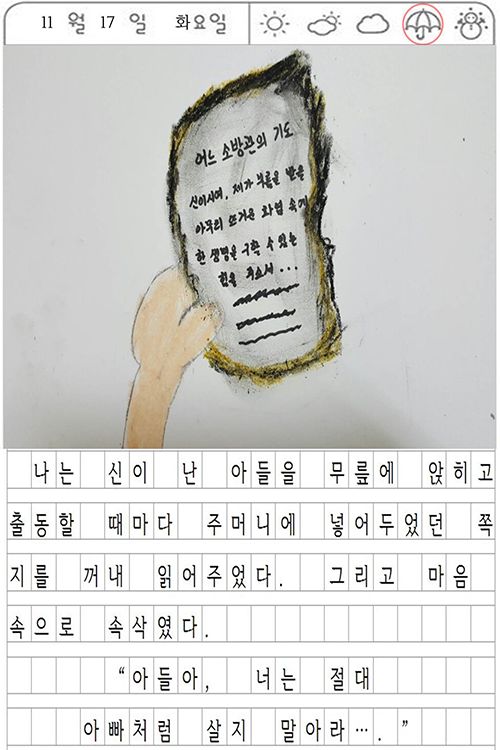 11 월 17 일 화요일
어느 소방관의 기도
신이시여, 제가 부름을 받을
아무리 뜨거운 화염 속에
한 생명을 구할 수 있는
힘을 주소서...
나는 신이 난 아들을 무릎에 앉히고
출동할 때마다 주머니에 넣어두었던 쪽
지를 꺼내 읽어주었다. 그리고 마음
속으로 속삭였다.
“아들아, 너는 절대
아빠처럼 살지 말아라…. ”